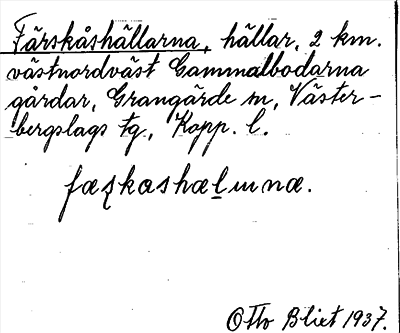 Färskåshällarna, hällar, 2 km.
västnordväst Gammalbodarna
gårdar, Grangärde sn, Väster-
bergslags tg, Kopp. l.
Otto Blixt 1937.